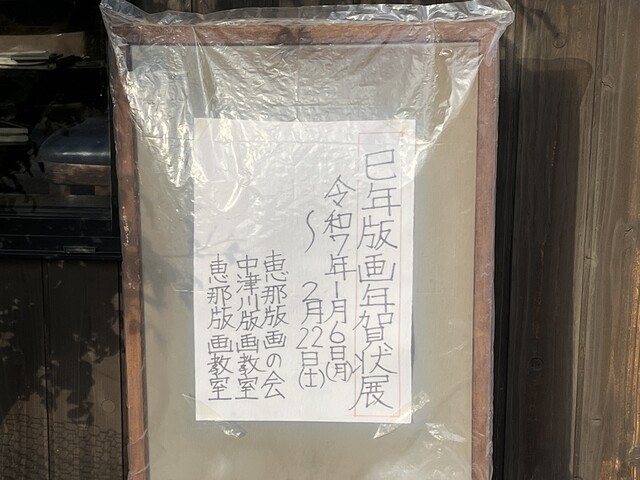 巳年版画年賀状展
令和7年1月6日(月)
〜 2月22日(土)
恵那版画の会
中津川版画教室
恵那版画教室